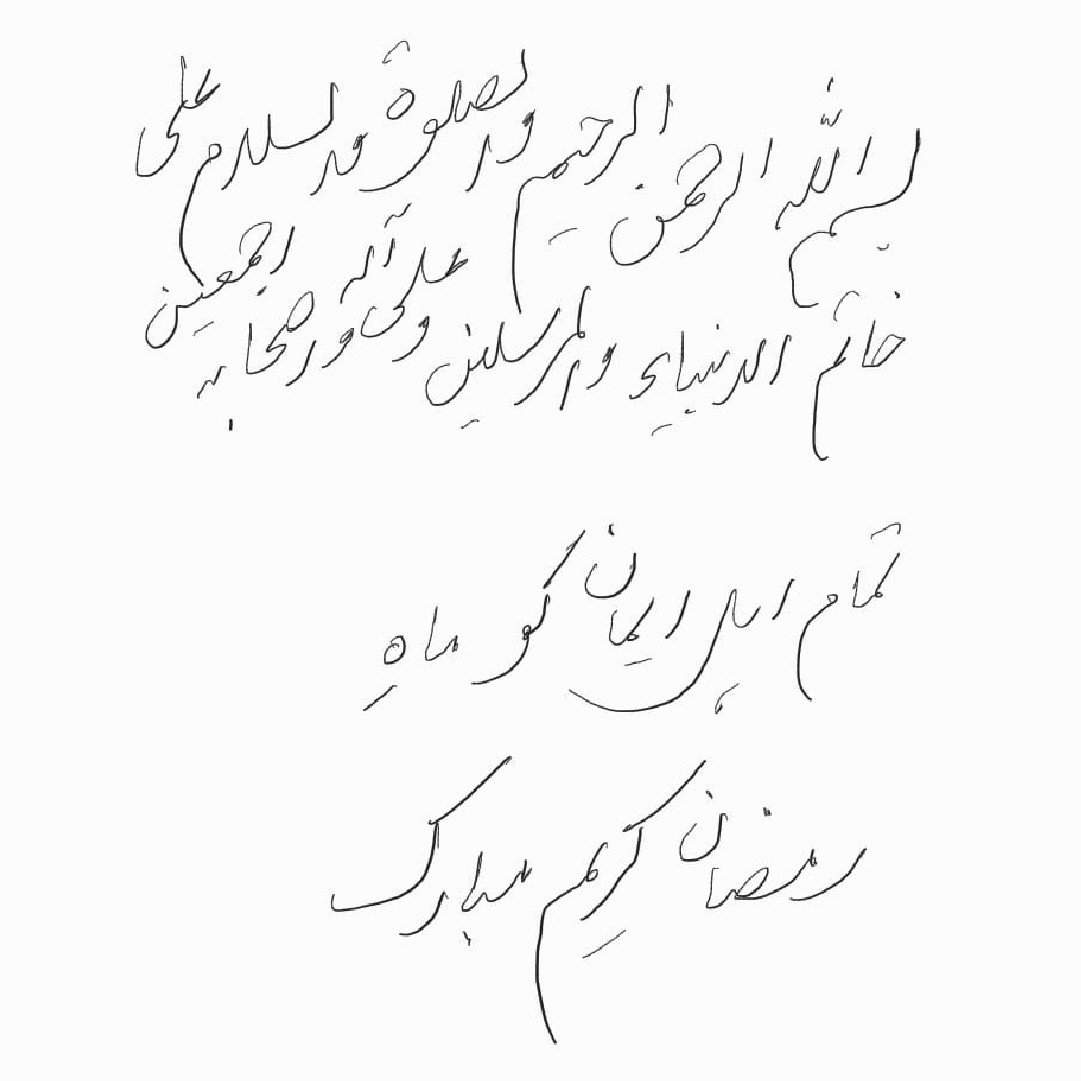 بسم الله الرحمن الرحیم والصلوۃ والسلام علی
خاتم الانبیاءِ والمرسلین وعلی آلہ واصحابہ اجمعین
تمام اہل ایمان کو ماہِ
رمضان کریم مبارک